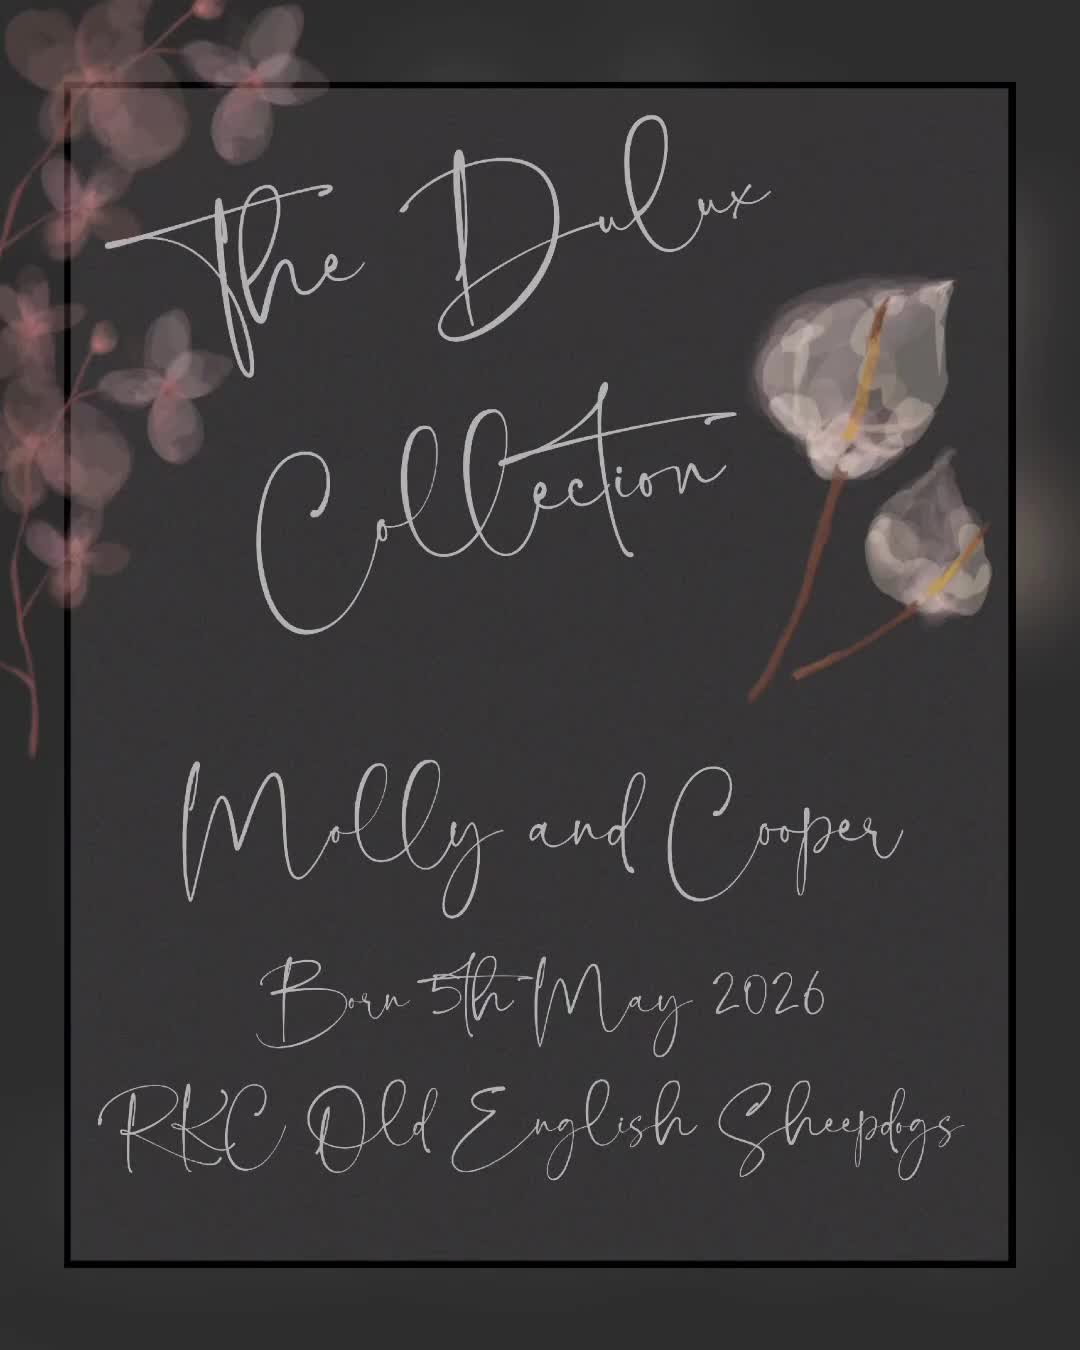 The Dulux
Collection
Molly and Cooper
Born 5th May 2026
RKC Old English Sheepdogs